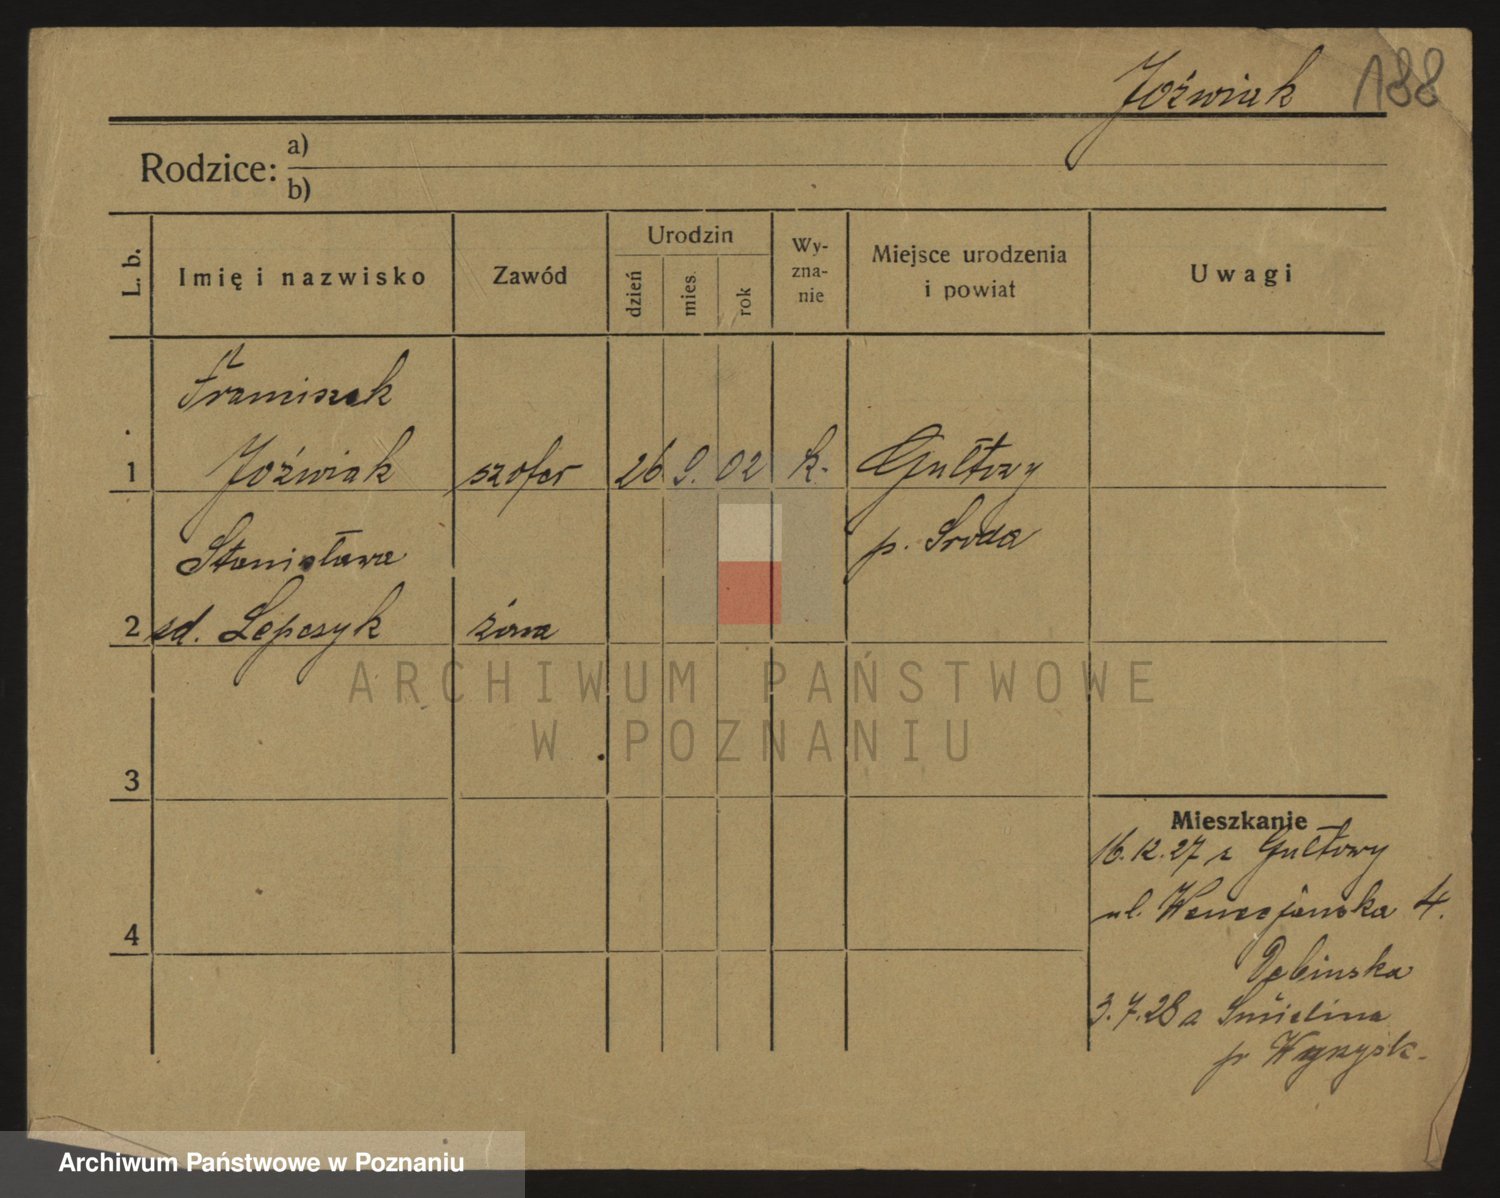 Joźwiak 188
Rodzice: a)
b)
L. b.
Imię i nazwisko
Zawód
Urodzin
dzień
mies.
rok
Wy-
zna-
nie
Miejsce urodzenia
i powiat
Uwagi
Franciszek
1 Joźwiak szofer 26 9. 02 k. Gułtowy
p. Sroda
Stanisława
2 sd. Lepczyk żona
3
4
Mieszkanie
16.12.27 z Gułtowy
ul. Wenecjanska 4.
Dębinska
3.7.28 a Śmielina
p Wyrzysk.
ARCHIWUM PAŃSTWOWE
W POZNANIU
Archiwum Państwowe w Poznaniu